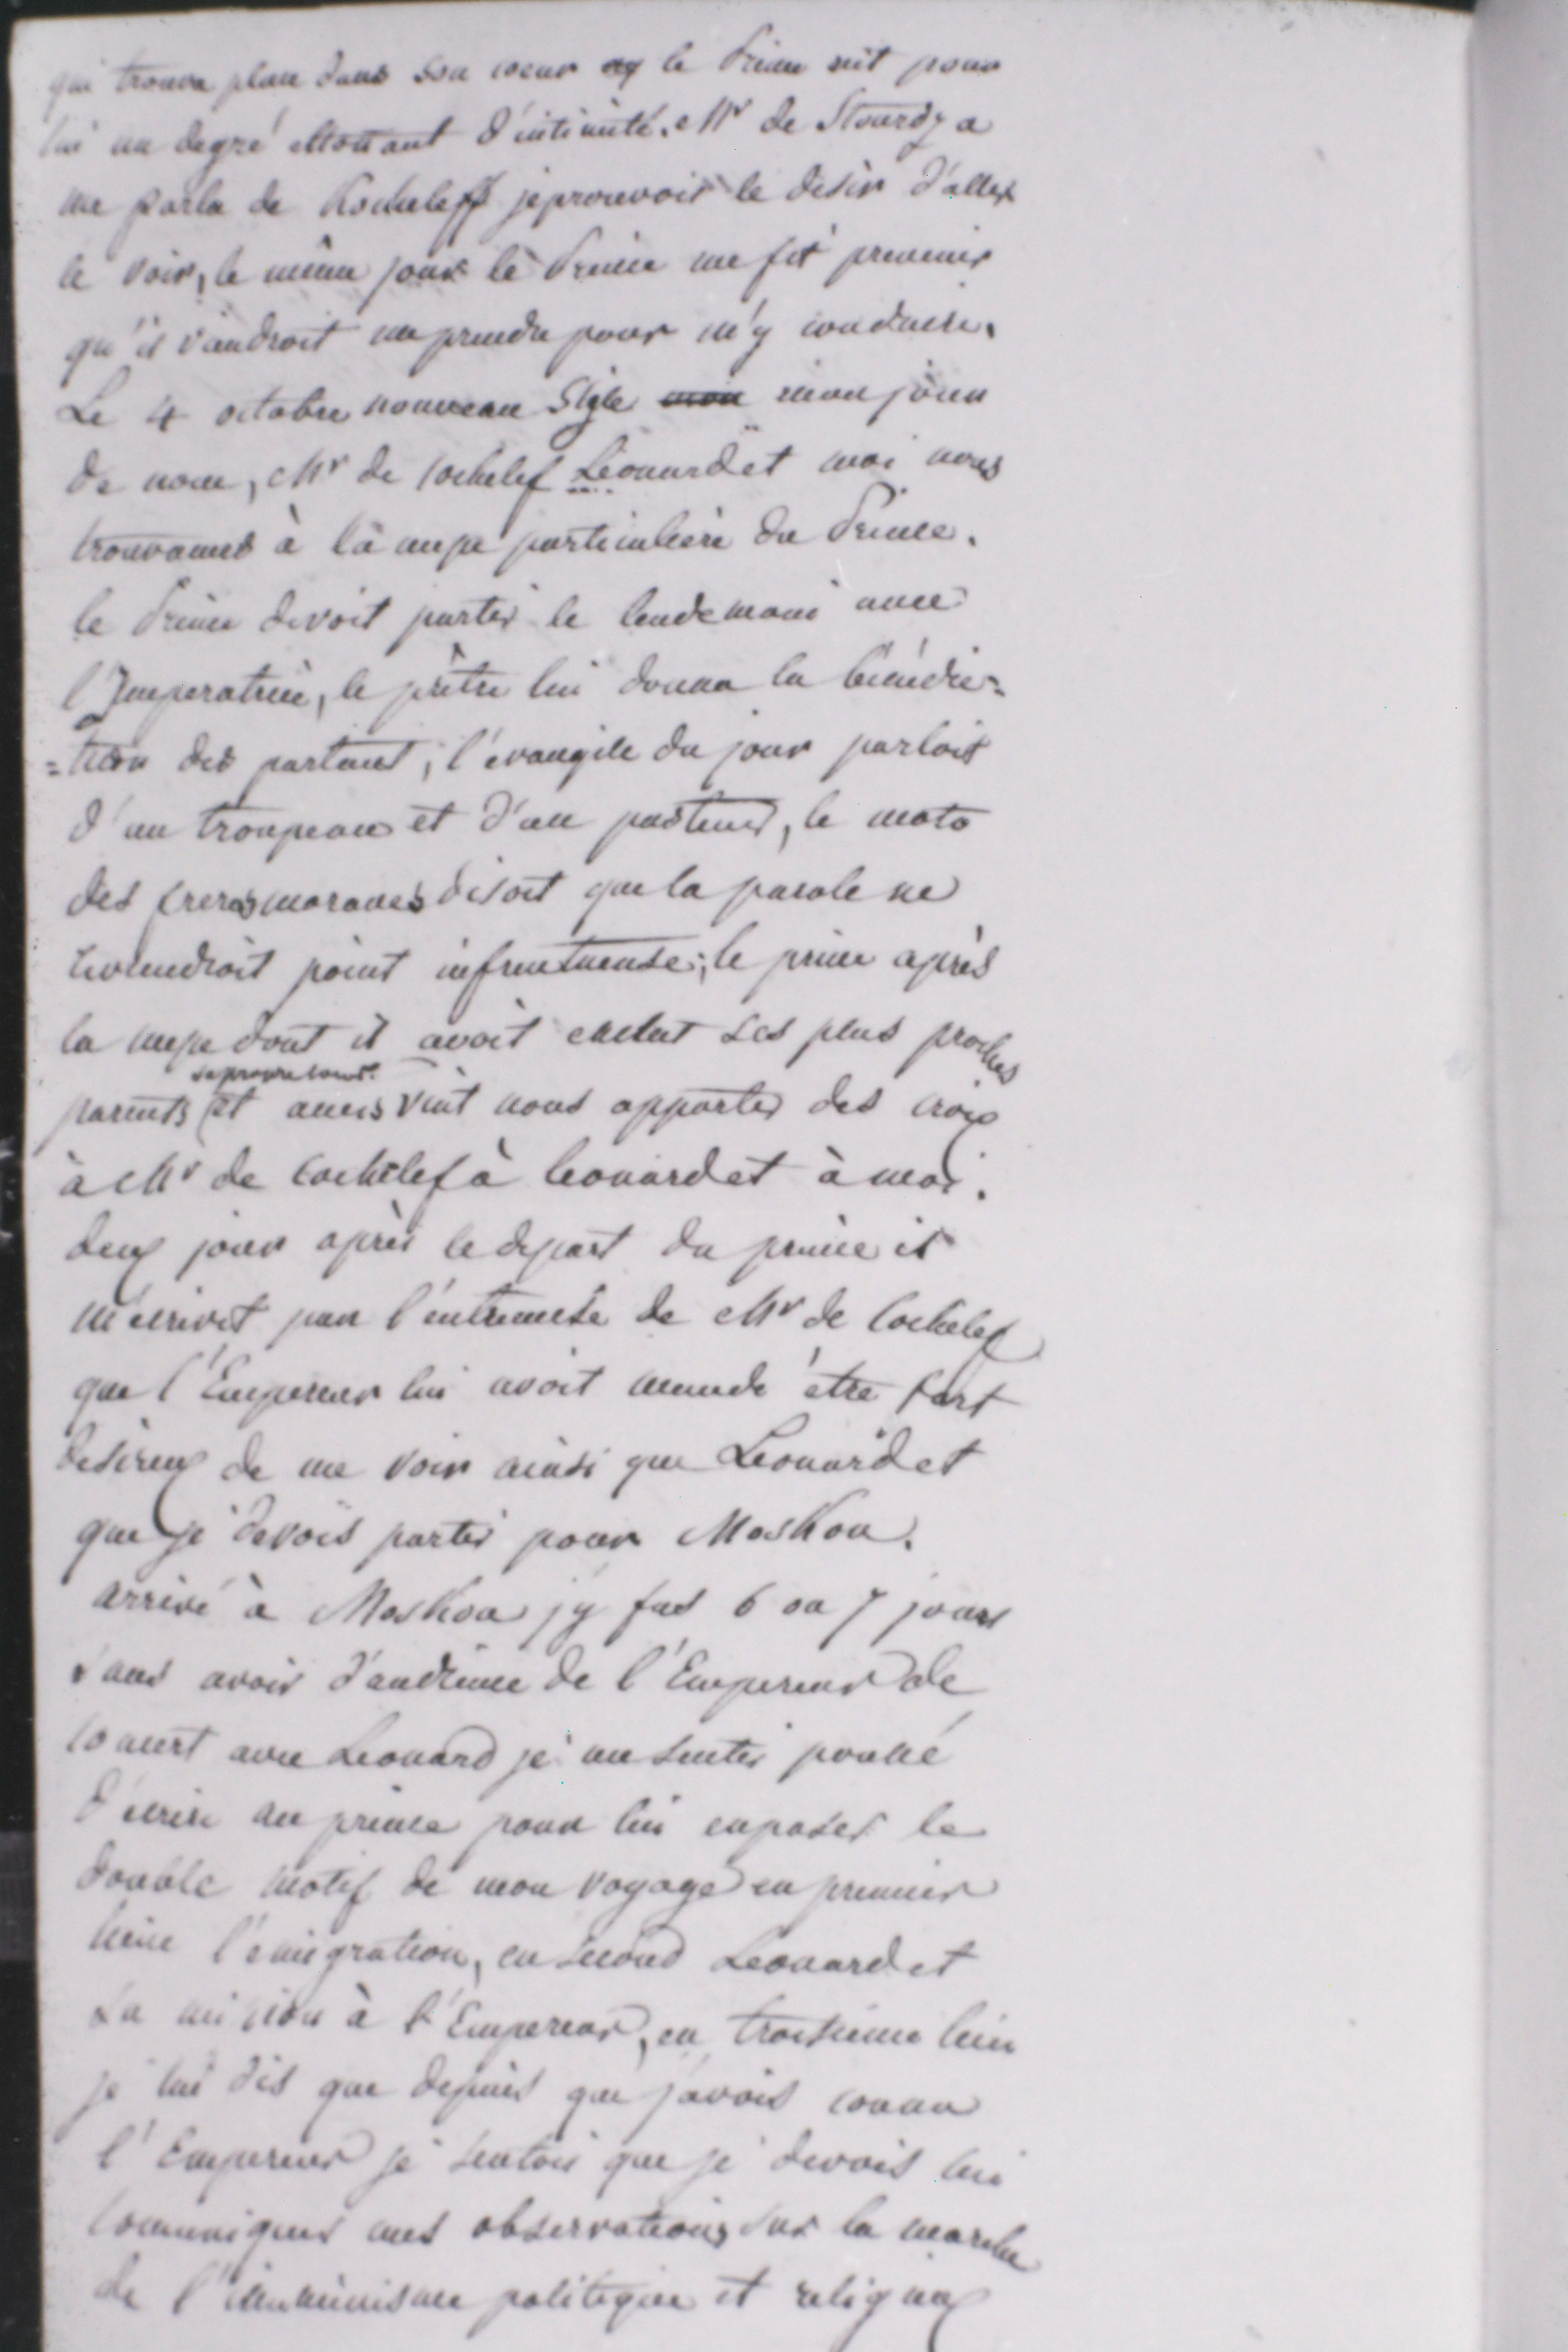 qui trouva place dans son coeur le Prince eut pour
lui un degré ettonant d'intimité. Mr de Stourdza
me parla de Kocheleff jeprouvois le desir d'aller
le voir, le même jour le Prince me fit prevenir
qu'il viandroit me prendre pour m'y conduire.
Le 4 octobre nouveau Style mon jour
de nom, Mr de Cochelef Léonard et moi nous
trouvames à la messe particuliere du Prince.
le Prince devoit partir le lendemain avec
l'Imperatrice, le prêtre lui donna la bénédic=
=tion des partant, l'evangile du jour parloit
d'un troupeau et d'un pasteur, le moto
des freres moraves disoit que la parole ne
reviendroit point infructueuse; le prince après
la messe dont il avoit exclut ses plus proches
sa propre soeur.
parents et amis vint nous apporter des croix
à Mr de Cochelef à Leonard et à moi.
deux jour après le depart du prince il
m'ecrivit par l'entremise de Mr de Cochelef
que l'Empereur lui avoit mandé être fort
desireux de me voir ainsi que Leonard et
que je devois partir pour Moskou.
arrivé à Moskou j'y fus 6 ou 7 jours
sans avoir d'audience de l'Empereur de
concert avec Leonard je me sentis poussé
d'ecrire au prince pour lui exposer le
double motif de mon voyage en premier
lieu l'emigration, en second Leonard et
sa mission à l'Empereur, en troisieme lieu
je lui dis que depuis que j'avois connu
l'Empereur je sentois que je devois lui
communiquer mes observations sur la marche
de l'illuminisme politique et religieux